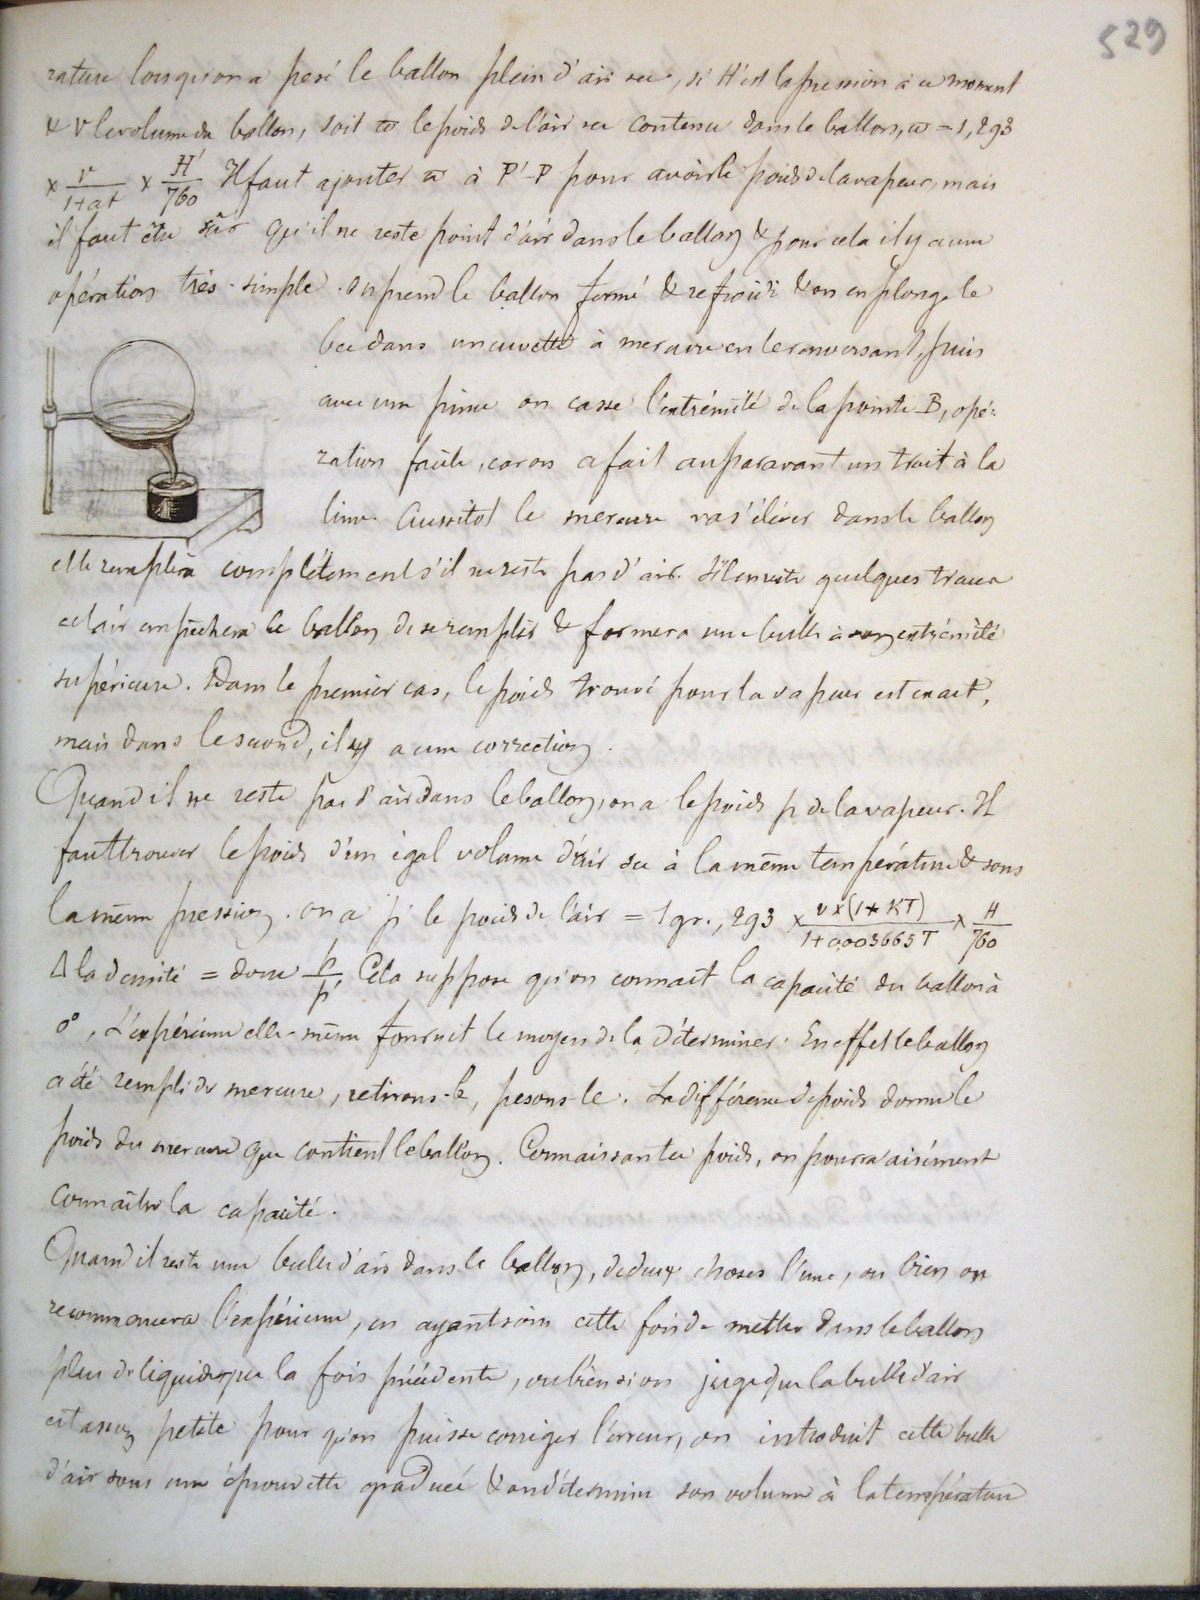 529
rature lorsqu'on a pesé le ballon plein d'air sec, si H' est la pression à ce moment
& V le volume du ballon, soit ϖ le poids de l'air sec contenu dans le ballon, ϖ = 1,293
× V/(1+at) × H'/760 Il faut ajouter ϖ à P'-P pour avoir le poids de la vapeur, mais
il faut être sûr qu'il ne reste point d'air dans le ballon & pour cela il y a une
opération très-simple. On prend le ballon fermé & refroidi & on en plonge le
bec dans une cuvette à mercure en le renversant, puis
avec une pince on casse l'extrémité de la pointe B, opé-
ration facile, car on a fait auparavant un trait à la
lime. Aussitot le mercure va s'élever dans le ballon
et le remplira complètement s'il ne reste pas d'air. S'il en reste quelques traces
cet air empêchera le ballon de se remplir & formera une bulle à son extrémité
supérieure. Dans le premier cas, le poids trouvé pour la vapeur est exact,
mais dans le second, il y a une correction.
Quand il ne reste pas d'air dans le ballon, on a le poids p de la vapeur. Il
faut trouver le poids d'un égal volume d'air sec à la même température & sous
la même pression. on a p' le poids de l'air = 1gr., 293 × V×(1+KT)/(1+0,003665T) × H/760
Δ la densité = donc p/p' Cela suppose qu'on connait la capacité du ballon à
0°, L'expérience elle-même fournit le moyen de la déterminer. En effet le ballon
a été rempli de mercure, retirons-le, pesons-le. La différence de poids donne le
poids du mercure que contient le ballon. Connaissant ce poids, on pourra aisément
connaître la capacité.
Quand il reste une bulle d'air dans le ballon, de deux choses l'une, ou bien on
recommencera l'expérience, en ayant soin cette fois de mettre dans le ballon
plus de liquide que la fois précédente, ou bien si on juge que la bulle d'air
est assez petite pour qu'on puisse corriger l'erreur, on introduit cette bulle
d'air sous une éprouvette graduée & on détermine son volume à la température